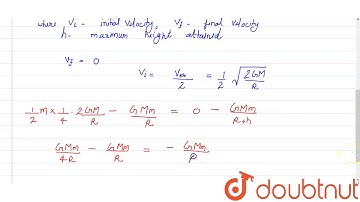 where Vi - inital velocity, Vf - final velocity
h - maximum height attained
Vf = 0
Vi = Ves/2 = 1/2 √(2GM/R)
1/2 m × 1/4 · 2GM/R - GMm/R = 0 - GMm/R+h
GMm/4R - GMm/R = - GMm/R
doubtnut